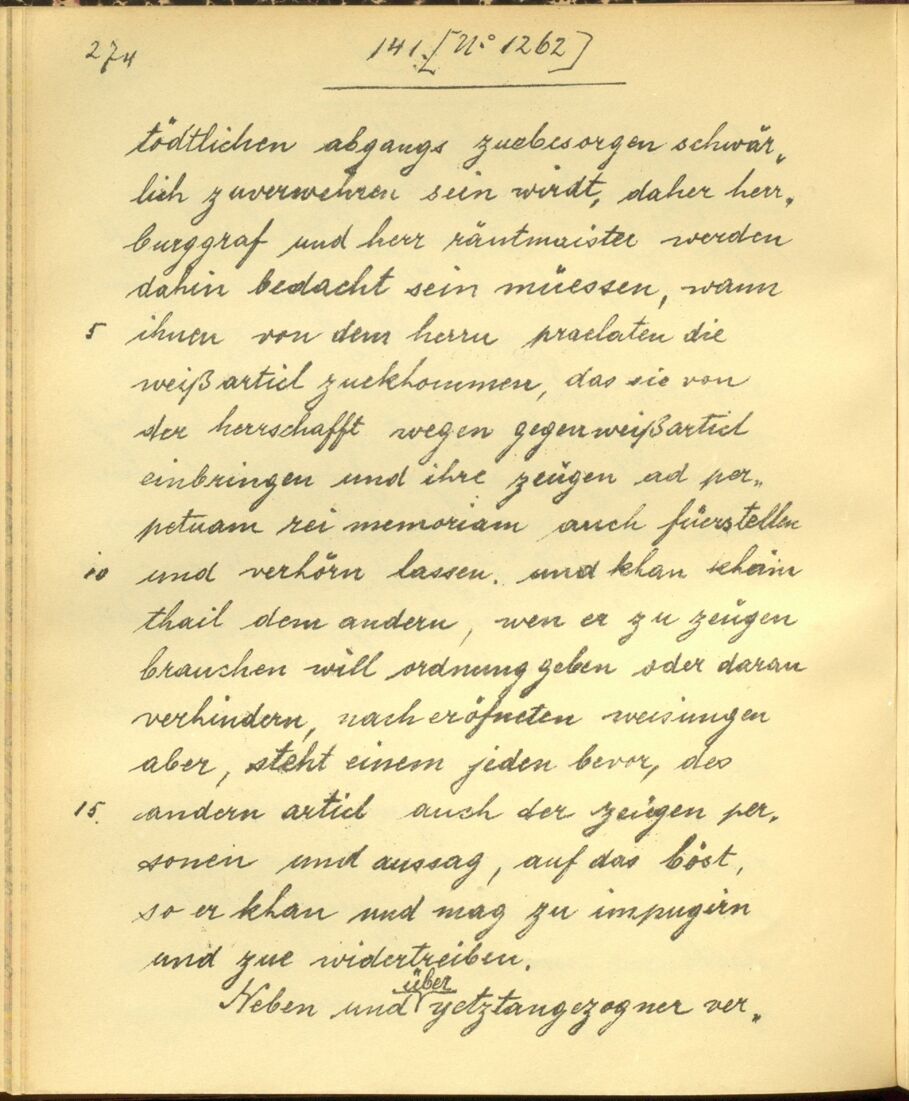 274 141. [No 1262]
tödtlichen abgangs zuebesorgen schwär„
lich zuverwehren sein wirdt, daher herr„
burggraf und herr räntmaister werden
dahin bedacht sein müessen, wann
5 ihnen von dem herrn praelaten die
weißarticl zuekhommen, das sie von
der herrschafft wegen gegenweißarticl
einbringen und ihre zeügen ad per„
petuam rei memoriam auch füerstellen
10 und verhörn lassen. und khan khäin
thail dem andern, wen er zu zeügen
brauchen will ordnung geben oder daran
verhindern, nach eröfneten weisungen
aber, steht einem jeden bevor, des
15. andern articl auch der zeügen per„
sonen und aussag, auf das böst,
so er khan und mag zu impugirn
und zue widertreiben.
über
Neben und yetztangezogner ver„